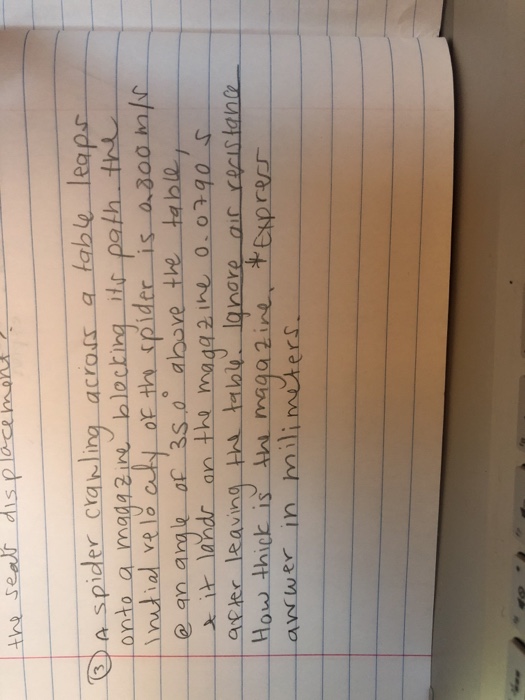 the seal's displacement?
③ A spider crawling across a table leaps
onto a magazine blocking its path. the
initial velocity of the spider is 0.800 m/s
@ an angle of 35.0° above the table,
& it lands on the magazine 0.0790 s
after leaving the table. Ignore air resistance
How thick is the magazine. *Express
answer in milimeters.